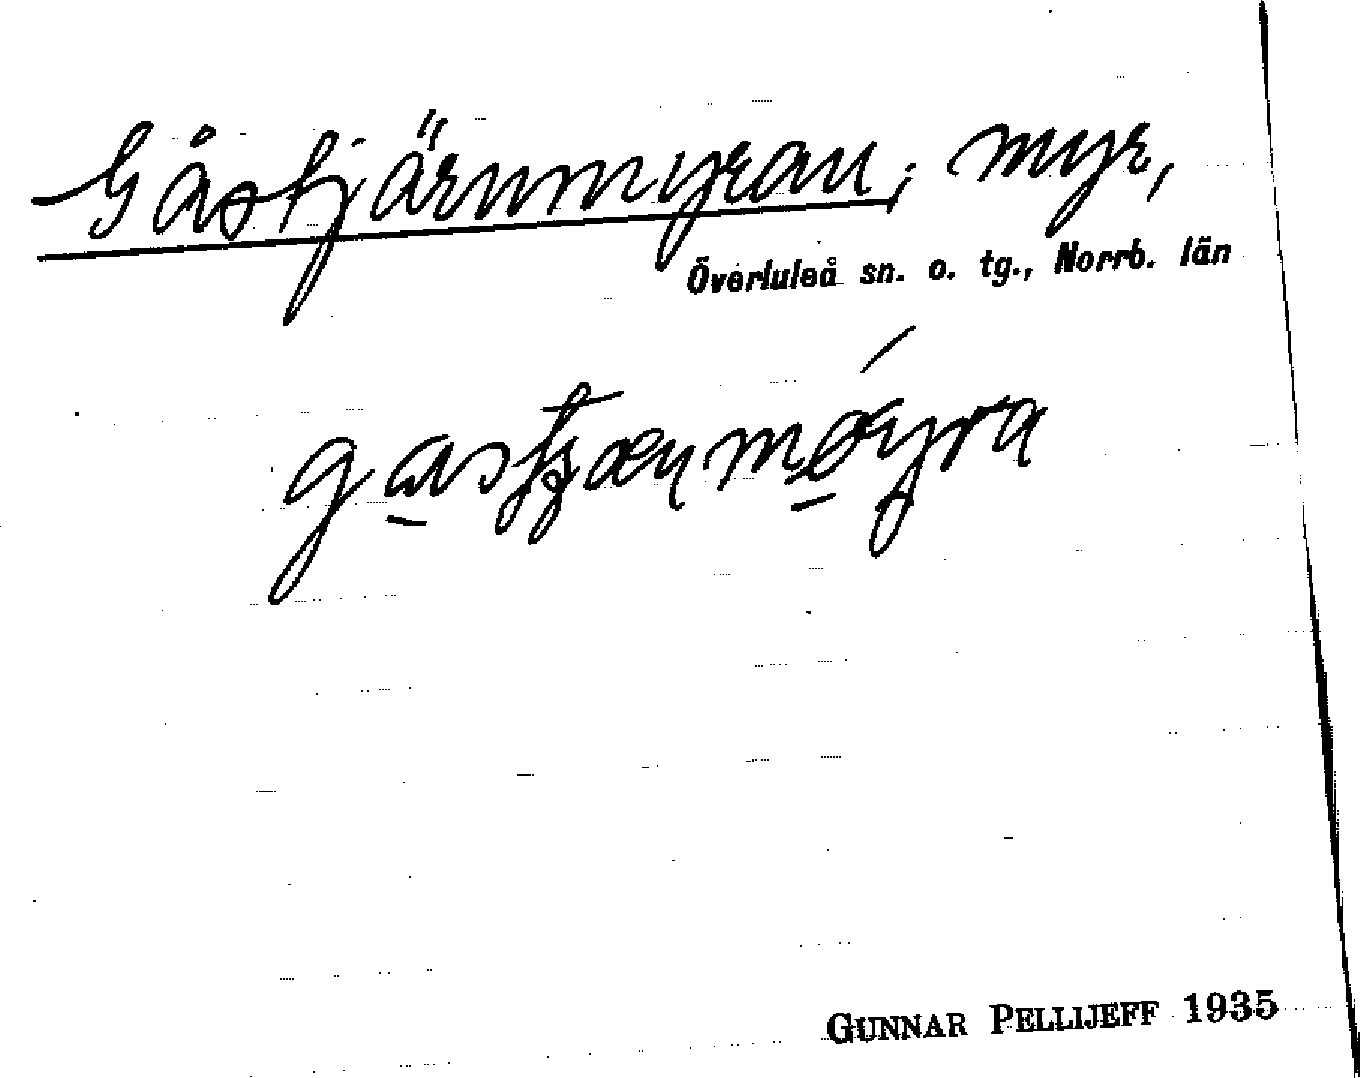 Gåstjärnmyran, myr,
Överluleå sn. o. tg., Norrb. län
GUNNAR PELLIJEFF 1935